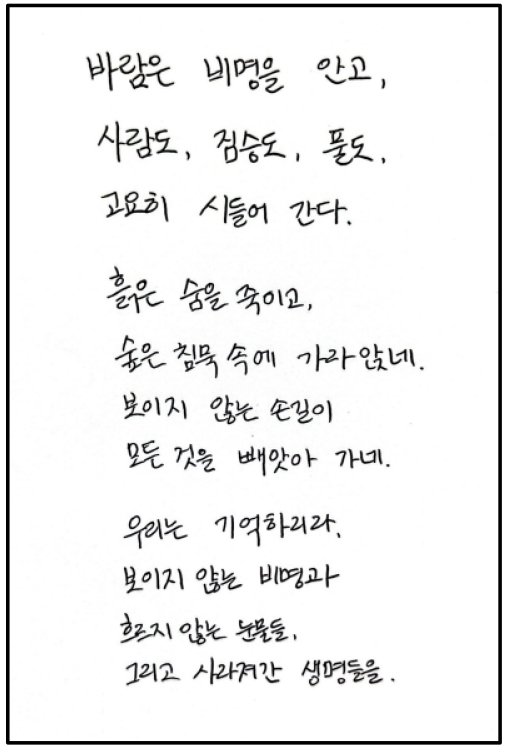 바람은 비명을 안고,
사람도, 짐승도, 풀도,
고요히 시들어 간다.
흙은 숨을 죽이고,
숲은 침묵 속에 가라앉네.
보이지 않는 손길이
모든 것을 빼앗아 가네.
우리는 기억하리라.
보이지 않는 비명과
흐르지 않는 눈물들,
그리고 사라져간 생명들을.